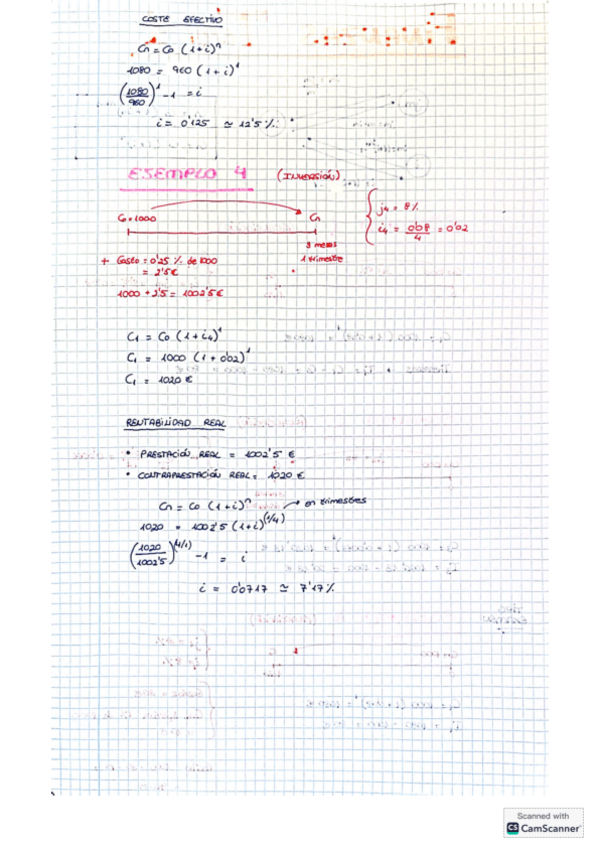 COSTE EFECTIVO
Cn = Co (1+i)^n
1080 = 960 (1+i)^1
(1080/960)^1 - 1 = i
i = 0'125 ≃ 12'5 %.
EJEMPLO 4 (INVERSIÓN)
Co = 1000 Cn
j4 = 8 %
i4 = 0'08/4 = 0'02
3 meses
1 trimestre
+ Gasto = 0'25 % de 1000
= 2'5 €
1000 + 2'5 = 1002'5 €
C1 = Co (1 + i4)^1
C1 = 1000 (1 + 0'02)^1
C1 = 1020 €
RENTABILIDAD REAL
• PRESTACIÓN REAL = 1002'5 €
• CONTRAPRESTACIÓN REAL = 1020 €
Cn = Co (1+i)^n → en trimestres
1020 = 1002'5 (1+i)^(1/4)
(1020/1002'5)^(4/1) - 1 = i
i = 0'0717 ≃ 7'17 %
Scanned with
CS CamScanner